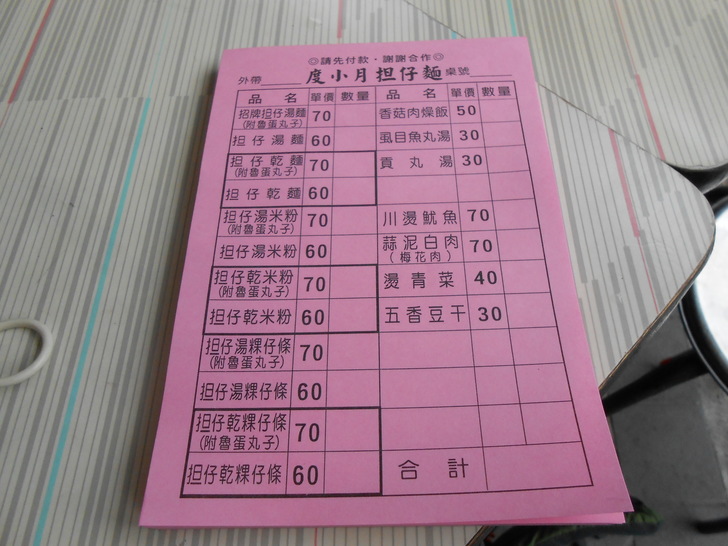 ◎請先付款·謝謝合作◎
外帶 度小月担仔麵 桌號
品名 單價 數量 品名 單價 數量
招牌担仔湯麵 70 香菇肉燥飯 50
(附魯蛋丸子)
担仔湯麵 60 虱目魚丸湯 30
担仔乾麵 70 貢丸湯 30
(附魯蛋丸子)
担仔乾麵 60
担仔湯米粉 70 川燙魷魚 70
(附魯蛋丸子)
担仔湯米粉 60 蒜泥白肉 70
(梅花肉)
担仔乾米粉 70 燙青菜 40
(附魯蛋丸子)
担仔乾米粉 60 五香豆干 30
担仔湯粿仔條 70
(附魯蛋丸子)
担仔湯粿仔條 60
担仔乾粿仔條 70
(附魯蛋丸子)
担仔乾粿仔條 60 合計